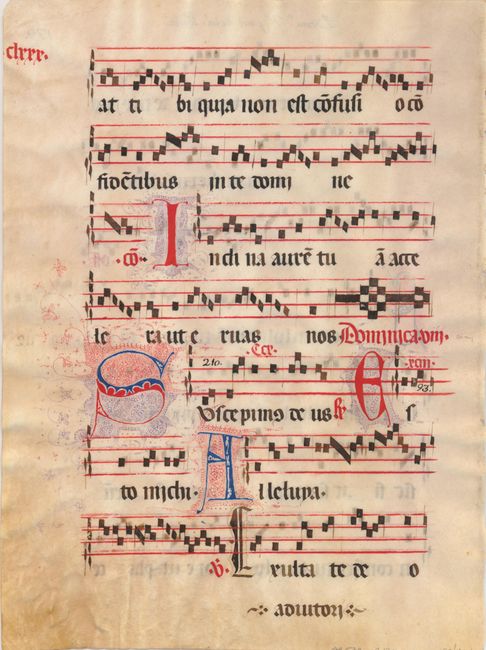 clxxx.
at ti bi quia non est cõfusi o cõ
fidẽtibus in te domi ne
.cõ. I nclina aurẽ tu ã acce
le ra ut e ruas nos Dominica.viii.
210. .ccx. .xciii. 93.
S uscepimus de us R E s
to michi. A lleluya.
.v. E xulta te de o
adiutori